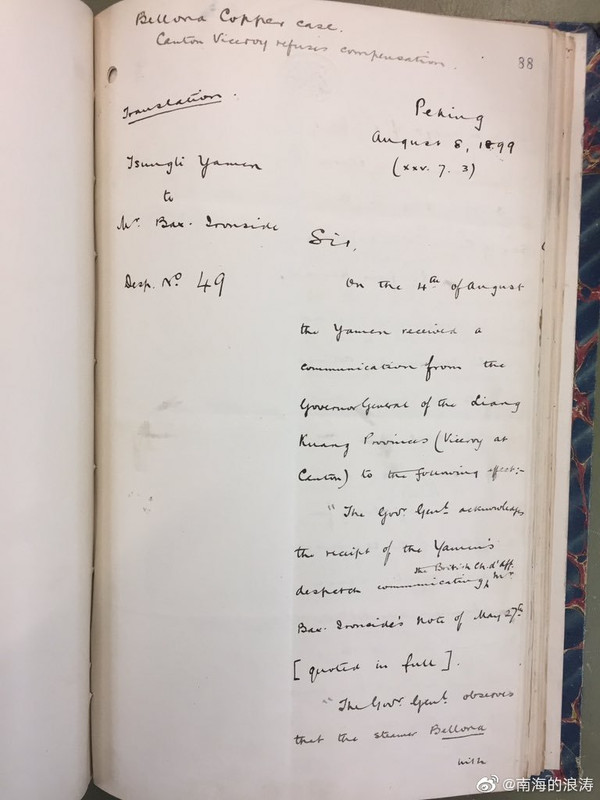 Bellona Copper case.
Canton Viceroy refuses compensation.
88
Translation.
Peking
August 8, 1899
(xxv. 7. 3)
Tsungli Yamen
to
Mr. Bax. Ironside
Desp. No 49
Sir,
On the 4th of August
the Yamen received a
communication from the
Governor General of the Liang
Kuang Provinces (Viceroy at
Canton) to the following effect:-
"The Govr. Genl. acknowledges
the receipt of the Yamen's
the British Ch. d'aff.
despatch communicating Mr.
Bax. Ironside's note of May 27th
[quoted in full].
"The Govr. Genl. observes
that the steamer Bellona
with
@南海的浪涛